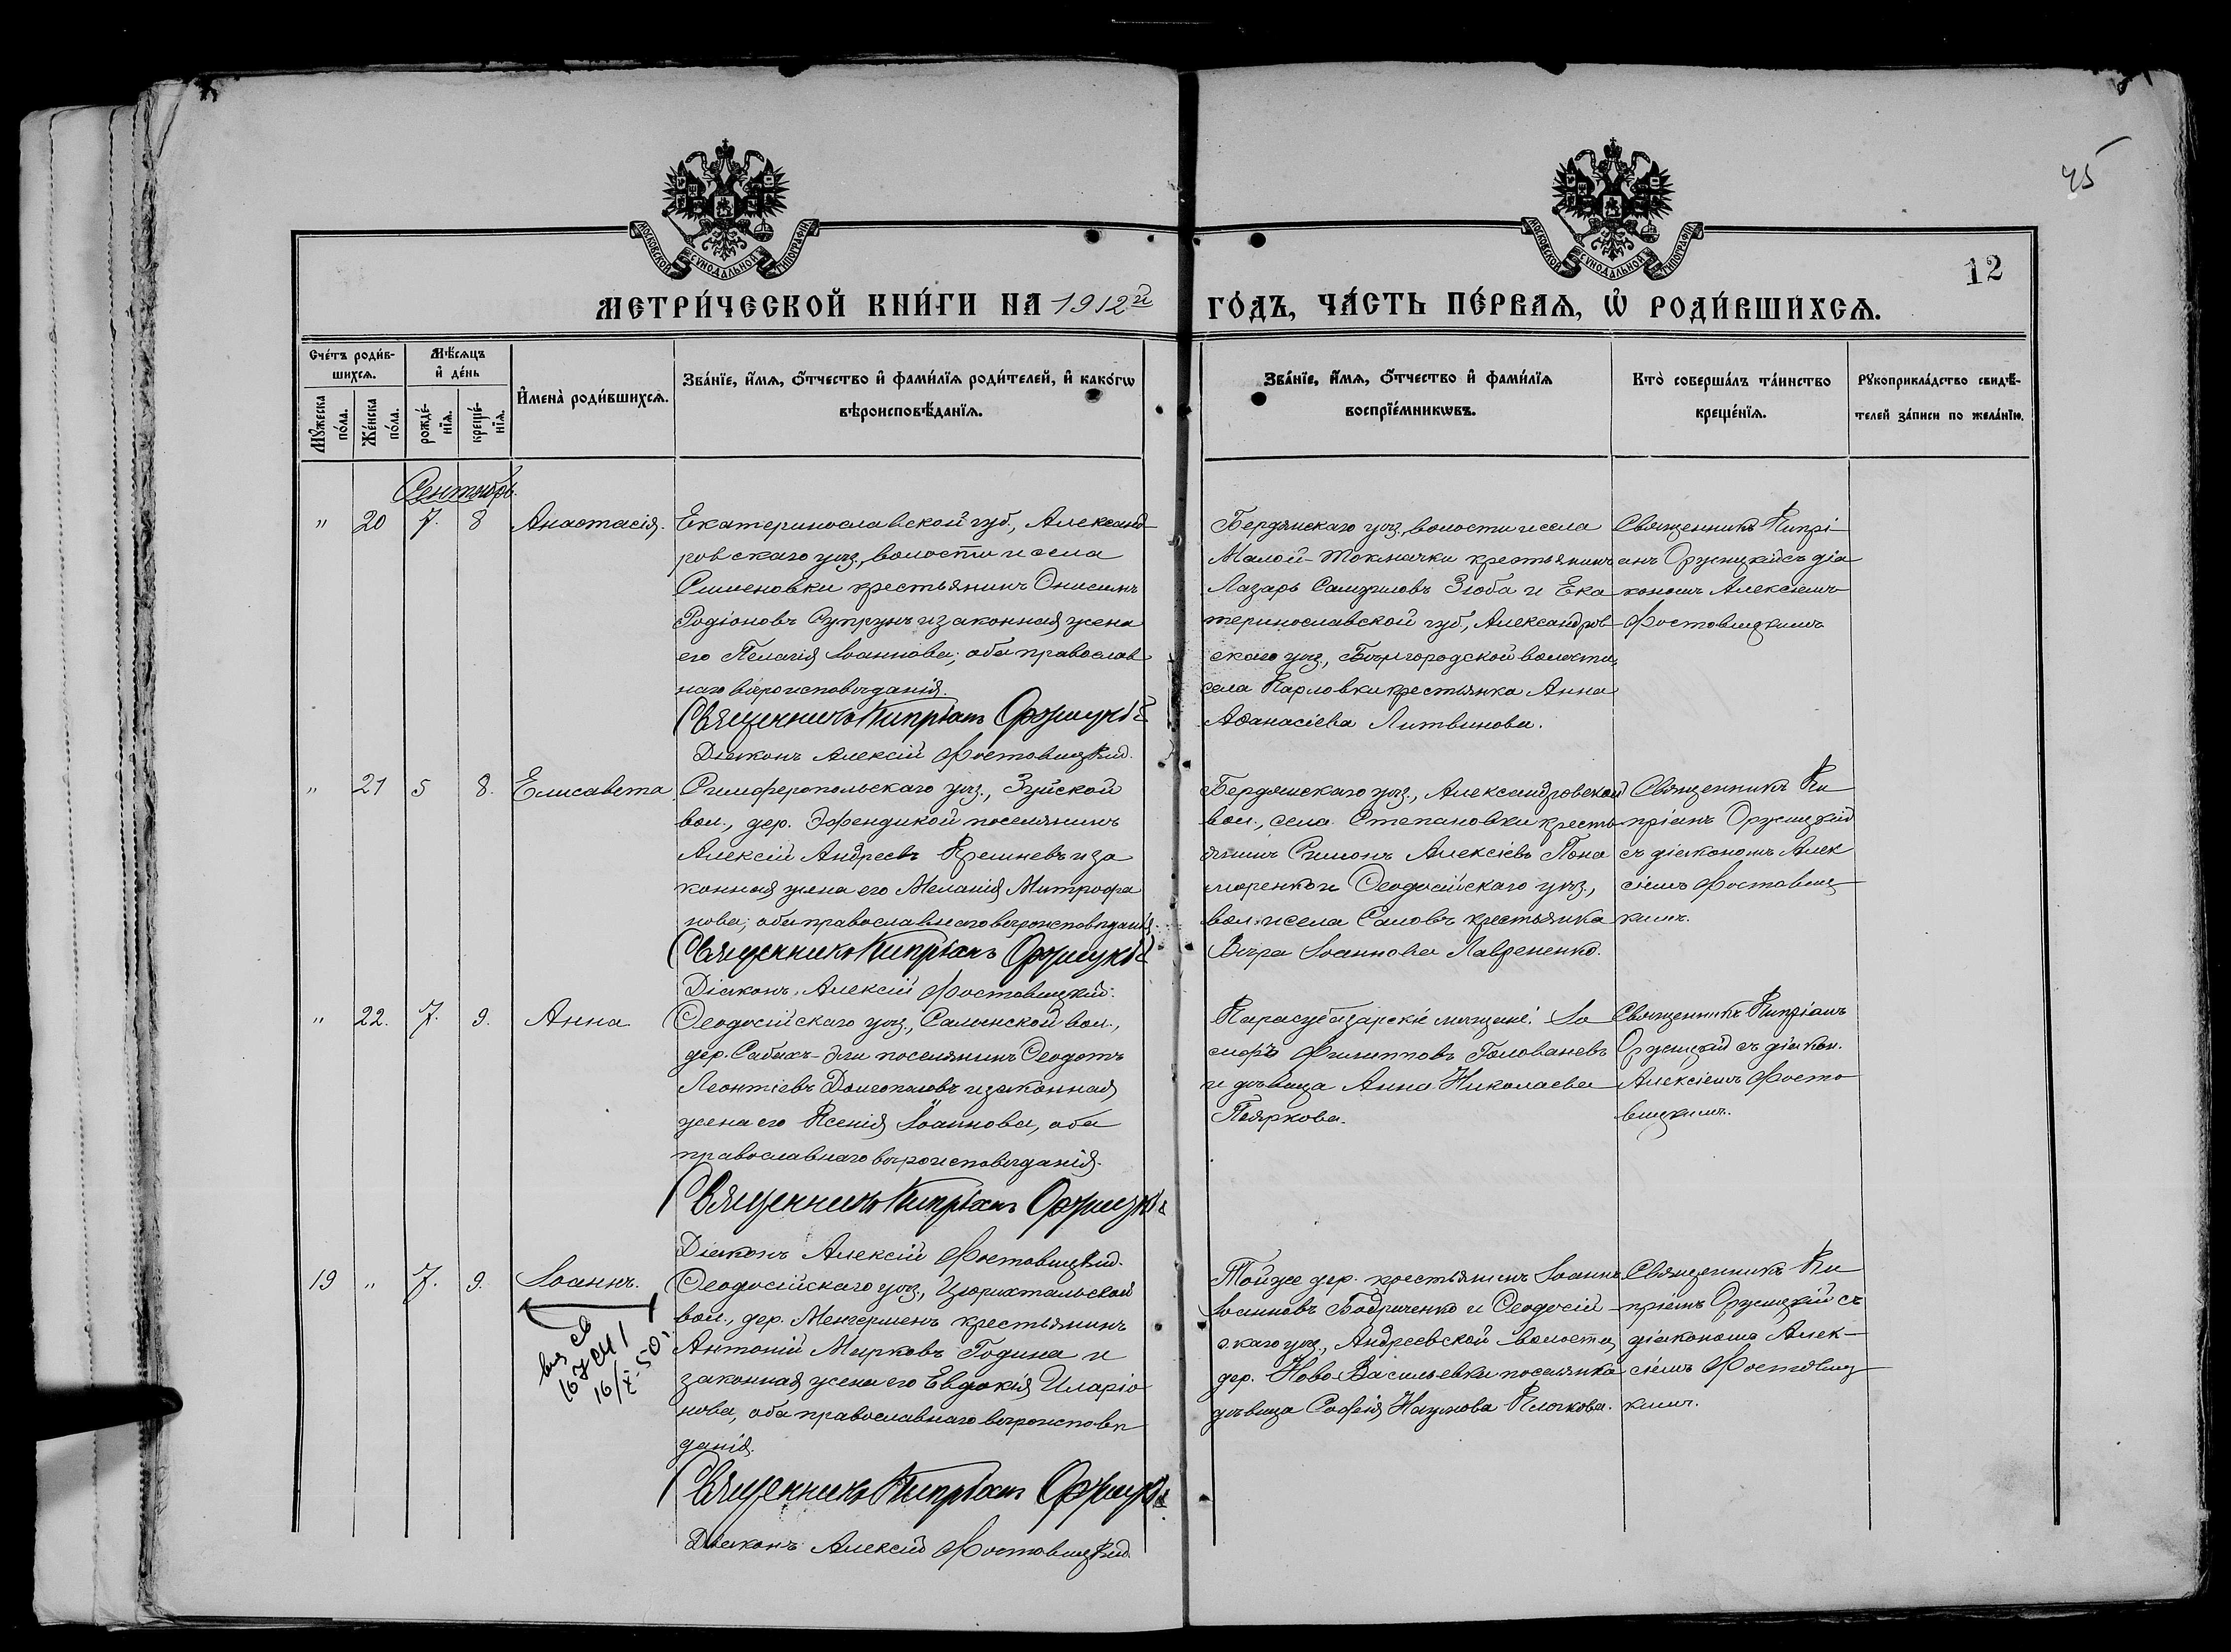 45
12
МОСКОВСКОЙ СѴНОДАЛЬНОЙ ТИПОГРАФІИ
МОСКОВСКОЙ СѴНОДАЛЬНОЙ ТИПОГРАФІИ
МЕТРИ́ЧЕСКОЙ КНИ́ГИ НА 1912й ГО́ДЪ, ЧА́СТЬ ПЕ́РВАѦ, Ѡ҆ РОДИ́ВШИХСѦ.
Сче́тъ роди́в-
шихсѧ.
Мѣ́сѧцъ
и҆ де́нь
Мꙋ́жеска по́ла.
Же́нска по́ла.
рожде́-
нїѧ.
креще́-
нїѧ.
И҆мена̀ роди́вшихсѧ.
Зва́нїе, и҆́мѧ, ѻ҆́тчество и҆ фами́лїѧ роди́телей, и҆ како́гѡ
вѣроисповѣ́данїѧ.
Зва́нїе, и҆́мѧ, ѻ҆́тчество и҆ фами́лїѧ
воспрїе́мникѡвъ.
Кто̀ соверша́лъ та́инство
креще́нїѧ.
Рꙋкоприкла́дство свидѣ́-
телей за́писи по жела́нїю.
Сентябрь.
" 20 7. 8 Анастасія.
Екатеринославской губ., Александ-
ровскаго уѣз., волости и села
Семеновки крестьянинъ Онисимъ
Родіоновъ Супрунъ и законная жена
его Пелагія Іоаннова; оба православ
наго вѣроисповѣданія.
Священникъ Кипріанъ
Діаконъ Алексій Фостовицкій.
Бердянскаго уѣз., волости и села
Малой-Токмачки крестьянинъ
Лазарь Самуиловъ Зюба и Ека
теринославской губ., Александров-
скаго уѣз., волости,
села Карловки крестьянка Анна
Аѳанасіева Литвинова.
Священникъ Кипрі-
анъ съ діа
кономъ Алексіемъ
Фостовицкимъ
" 21 5 8. Елисавета.
Симферопольскаго уѣз., Зуйской
вол., дер. Эфендикой поселянинъ
Алексій Андреевъ Кремневъ и за
конная жена его Меланія Митрофа
нова; оба православнаго вѣроисповѣданія.
Священникъ Кипріанъ
Діаконъ Алексій Фостовицкій.
Бердянскаго уѣз., Александровской
вол., села Степановки кресть
янинъ Симонъ Алексіевъ Поно
маренко и Ѳеодосійскаго уѣз.,
вол. и села Саловъ крестьянка
Вѣра Іоаннова Лаврененко.
Священникъ Ки
пріанъ
съ діакономъ Алек
сіемъ Фостовиц
кимъ.
" 22. 7. 9. Анна
Ѳеодосійскаго уѣз., Салынской вол.,
дер. Сабахъ-Эли поселянинъ Ѳеодотъ
Леонтіевъ Долгополовъ и законная
жена его Ксенія Іоаннова, оба
православнаго вѣроисповѣданія.
Священникъ Кипріанъ
Діаконъ Алексій Фостовицкій.
Карасубазарскіе мѣщане: Іо
сифъ Филипповъ Голованевъ
и дѣвица Анна Николаева
Пояркова.
Священникъ Кипріанъ
съ діакон.
Алексіемъ Фосто
вицкимъ.
19 " 7. 9. Іоаннъ.
16/X-50
Ѳеодосійскаго уѣз., Цюрихтальской
вол., дер. Менгерменъ крестьянинъ
Антоній Марковъ Година и
законная жена его Евдокія Иларіо
нова, оба православнаго вѣроисповѣ
данія.
Священникъ Кипріанъ
Діаконъ Алексій Фостовицкій
Той же дер. крестьянинъ Іоаннъ
Іоанновъ Бодриченко и Ѳеодосій-
скаго уѣз., Андреевской волости,
дер. Ново-Васильевки поселянка
дѣвица Софія Наумова Клочкова.
Священникъ Ки
пріанъ съ
діакономъ Алек-
сіемъ Фостовиц
кимъ.